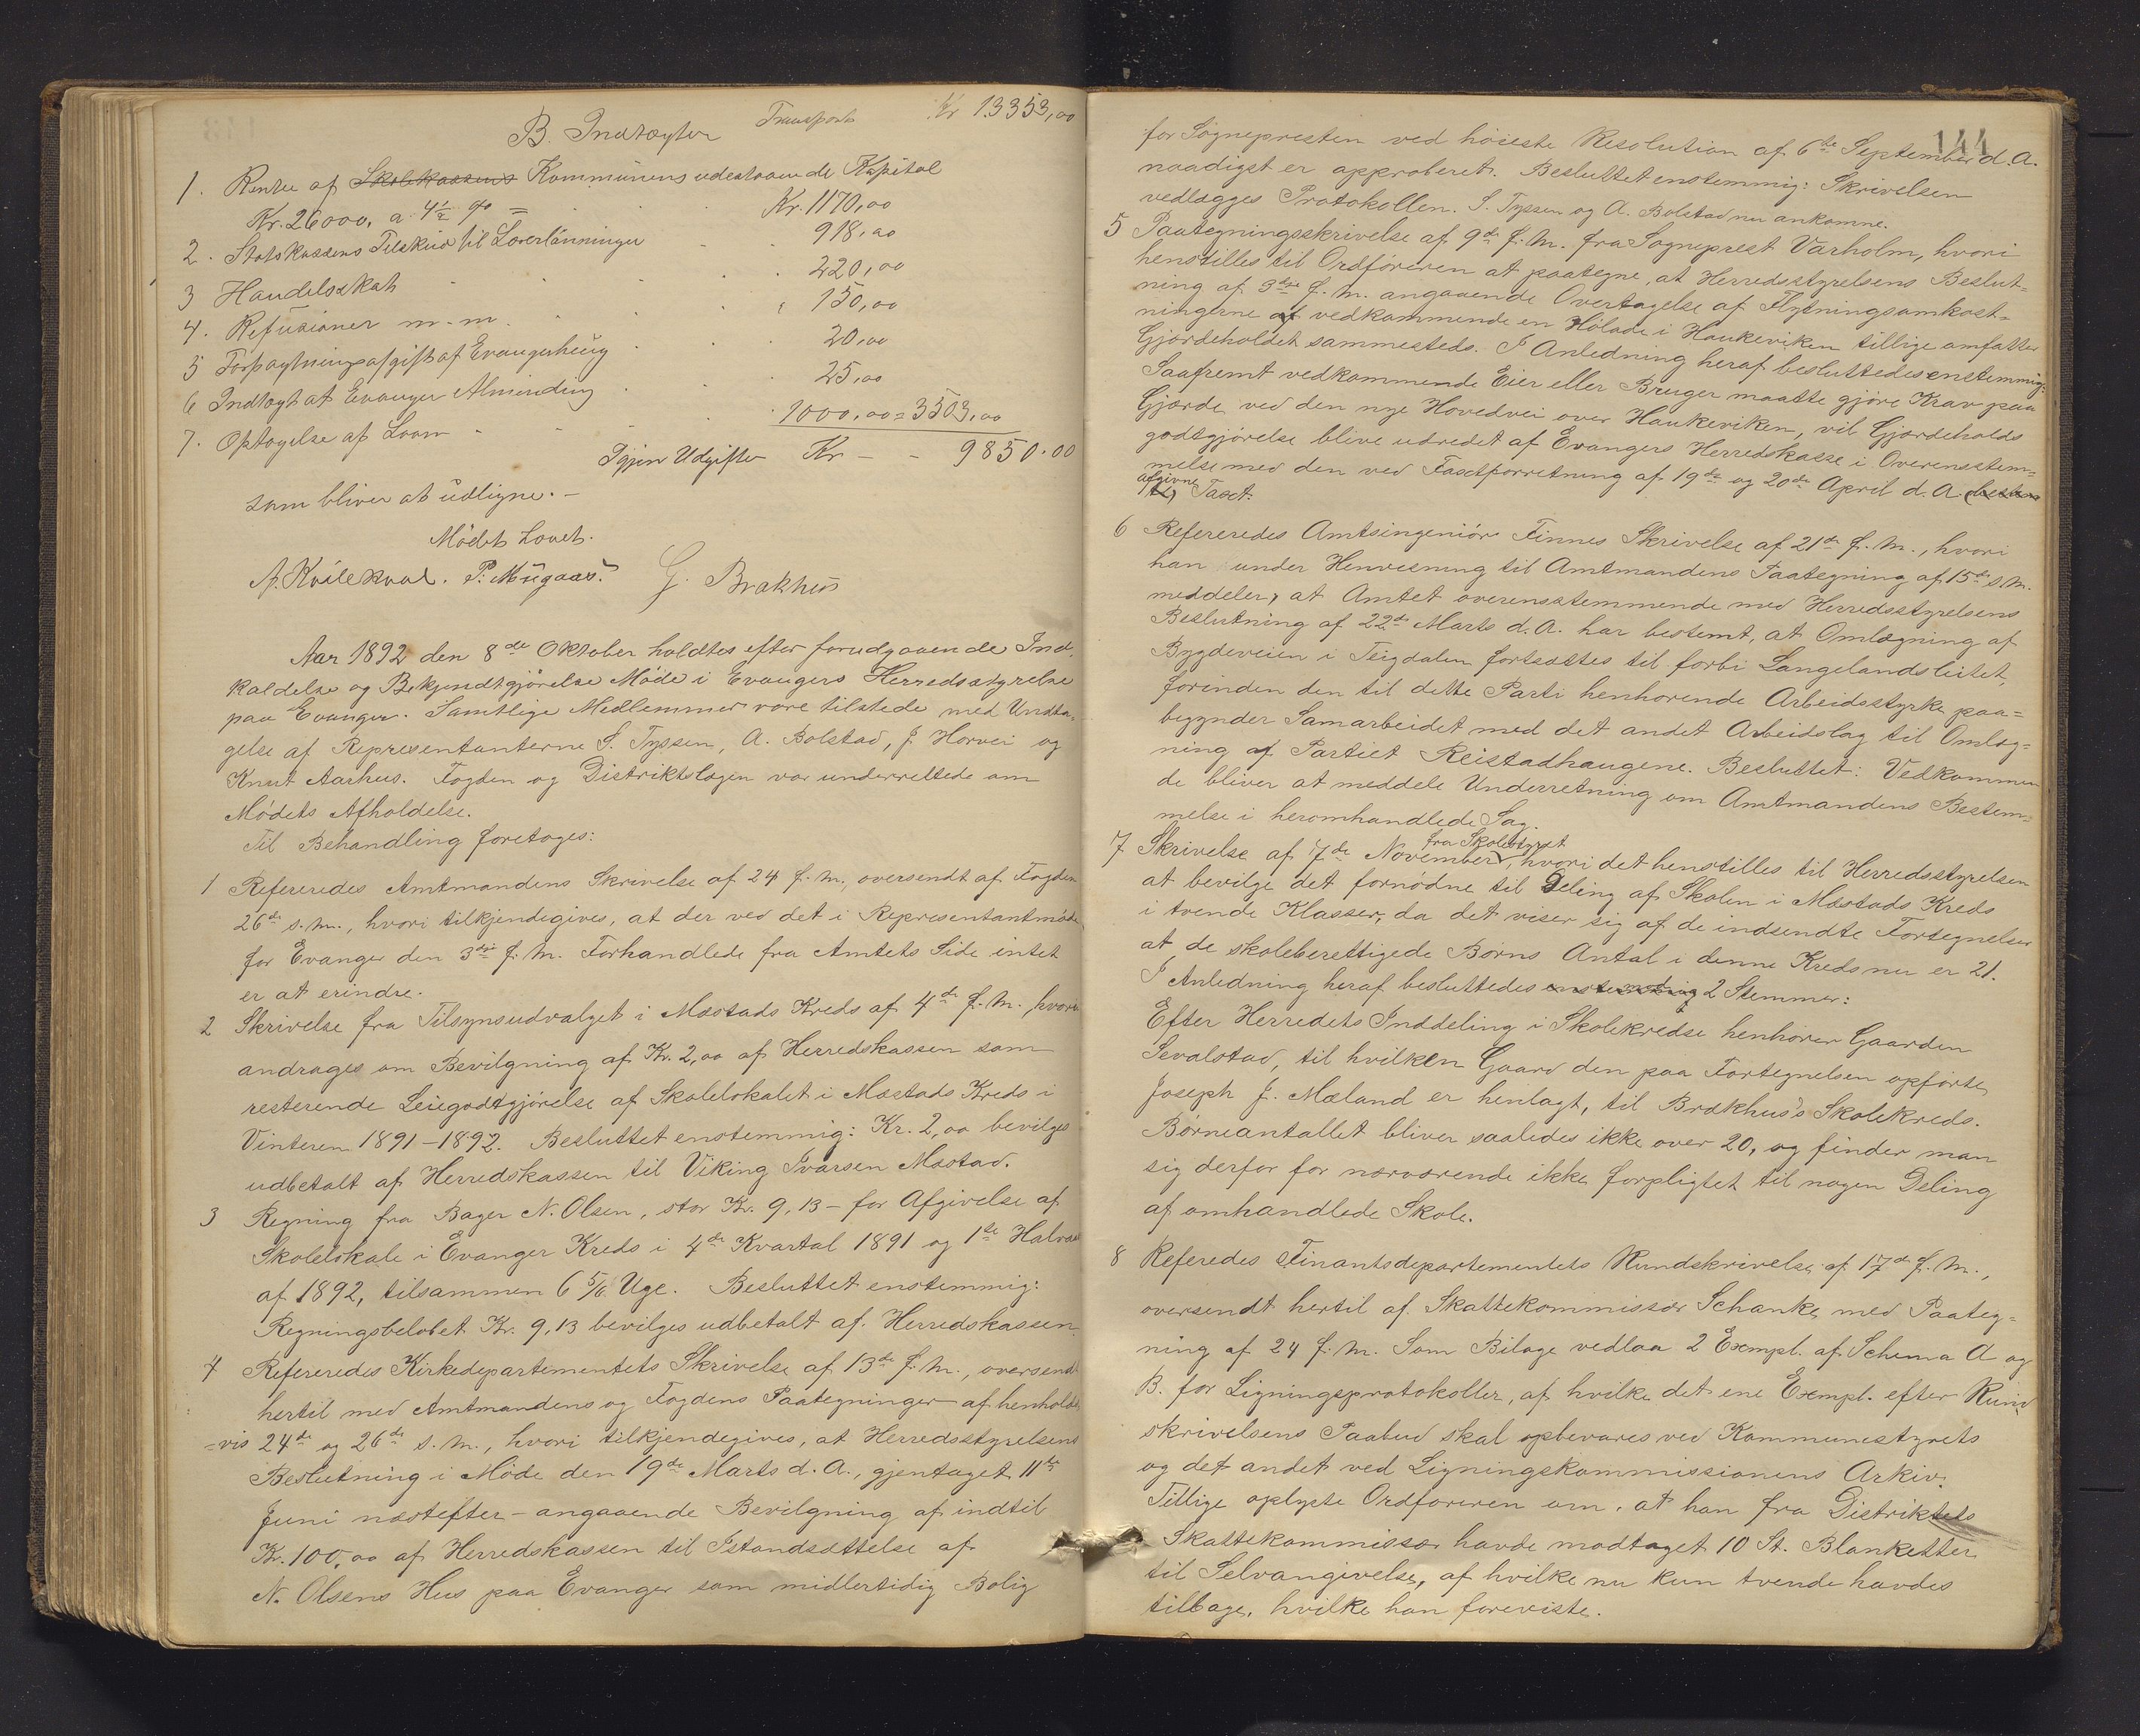 Transport Kr 13353,00
B. Indtægter
1. Renter af Skolekassens Kommunens udestaaende Kapital
Kr. 26000, a 4½ % = Kr. 1170,00
2. Statskassens Tilskud til Lærerlønninger 918,00
3 Handelsskat 220,00
4. Refusioner m. m. 150,00
5 Forpagtningsafgift af Evangerhaug 20,00
6 Indtægt af Evanger Alminding 25,00
7. Optagelse af Laan 1000,00 = 3503,00
Igjen Udgifter Kr - - 9850.00
som bliver at udligne. -
Mødet hævet.
A. Kvilekval. P. Mugaas. G. Brakhus
Aar 1892 den 8de Oktober holdtes efter forudgaaende Ind-
kaldelse og Bekjendtgjørelse Møde i Evangers Herredsstyrelse
paa Evanger. Samtlige Medlemmer vare tilstede med Undta-
gelse af Repræsentanterne S. Tyssen, A. Bolstad, J. Horvei og
Knut Aarhus. Fogden og Distriktslægen var underrettede om
Mødets Afholdelse.
Til Behandling foretoges:
1 Refereredes Amtmandens Skrivelse af 24 f. M., oversendt af Fogden
26de s. M., hvori tilkjendegives, at der ved det i Representantmøde
for Evanger den 3die f. M. Forhandlede fra Amtets Side intet
er at erindre.
2 Skrivelse fra Tilsynsudvalget i Mæstads Kreds af 4de f. M. hvori
andrages om Bevilgning af Kr. 2,00 af Herredskassen som
resterende Leiegodtgjørelse af Skolelokalet i Mæstads Kreds i
Vinteren 1891-1892. Besluttet enstemmig: Kr. 2,00 bevilges
udbetalt af Herredskassen til Viking Ivarsen Mæstad.
3 Regning fra Bager N. Olsen, stor Kr. 9,13 - for Afgivelse af
Skolelokale i Evanger Kreds i 4de Kvartal 1891 og 1ste Halvaar
af 1892, tilsammen 6 5/6 Uge. Besluttet enstemmig:
Regningsbeløbet Kr. 9,13 bevilges udbetalt af Herredskassen.
4 Refereredes Kirkedepartementets Skrivelse af 13de f. M., oversendt
hertil med Amtmandens og Fogdens Paategninger af henholds
=vis 24de og 26de s. M., hvori tilkjendegives, at Herredsstyrelsens
Beslutning i Møde den 19de Marts d. A., gjentaget 11te
Juni næstefter - angaaende Bevilgning af indtil
Kr. 100,00 af Herredskassen til Istandsættelse af
N. Olsens Hus paa Evanger som midlertidig Bolig
144
for Sognepresten ved høieste Resolution af 6te September d. A.
naadigst er approberet. Besluttet enstemmig: Skrivelsen
vedlægges Protokollen. S. Tyssen og A. Bolstad nu ankomne.
5 Paategningsskrivelse af 9de f. M. fra Sogneprest Varholm, hvori
henstilles til Ordføreren at paategne, at Herredsstyrelsens Beslut=
ning af 3die f. M. angaaende Overtagelse af Flytningsomkost=
ningerne af vedkommende en Hølade i Haukeviken tillige omfatter
Gjordeholdet sammesteds. I Anledning heraf besluttedes enstemmig:
Saafremt vedkommende Eier eller Bruger maatte gjøre Krav paa
Gjærde ved den nye Hovedvei over Haukeviken, vil Gjærdeholds
godtgjørelse blive udredet af Evangers Herredskasse i Overensstem=
melse med den ved Taxtforretning af 19de og 20de April d. A.
afgivne Taxt.
6 Refereredes Amtsingeniør Finnes Skrivelse af 21de f. M., hvori
han under Henvisning til Amtmandens Paategning af 15de s. M.
meddeler, at Amtet overensstemmende med Herredsstyrelsens
Beslutning af 22de Marts d. A. har bestemt, at Omlægning af
Bygdeveien i Teigdalen fortsættes til forbi Langelandsleitet,
forinden den til dette Parti henhørende Arbeidsstyrke paa=
begynder Samarbeidet med det andet Arbeidslag til Omlæg=
ning af Partiet Reistadhaugene. Besluttet: Vedkommen
de bliver at meddele Underretning om Amtmandens Bestem=
melse i heromhandlede Sag.
7 Skrivelse af 7de November fra Skolestyret, hvori det henstilles til Herredsstyrelsen
at bevilge det fornødne til Deling af Skolen i Mæstads Kreds
i tvende Klasser, da det viser sig af de indsendte Fortegnelser
at de skoleberettigede Børns Antal i denne Kreds nu er 21.
I Anledning heraf besluttedes enstemmig 2 Stemmer:
Efter Herredets Inddeling i Skolekredse henhører Gaarden
Sevalstad, til hvilken Gaard den paa Fortegnelsen opførte,
Joseph J. Mæland er henlagt, til Brækhus's Skolekreds.
Børneantallet bliver saaledes ikke over 20, og finder man
sig derfor for nærværende ikke forpligtet til nogen Deling
af omhandlede Skole.
8 Referedes Finantsdepartementets Rundskrivelse af 17de f. M.,
oversendt hertil af Skattekommissær Schanke med Paateg=
ning af 24 f. M. Som Bilage vedlaa 2 Exempl. af Schema A og
B. for Ligningsprotokoller, af hvilke det ene Exempl. efter Rund
skrivelsens Paabud skal opbevares ved Kommunestyrets
og det andet ved Ligningskommissionens Arkiv.
Tillige oplyste Ordføreren om, at han fra Distriktets
Skattekommissær havde modtaget 10 St. Blanketter
til Selvangivelse, af hvilke nu kun tvende havdes
tilbage, hvilke han foreviste.